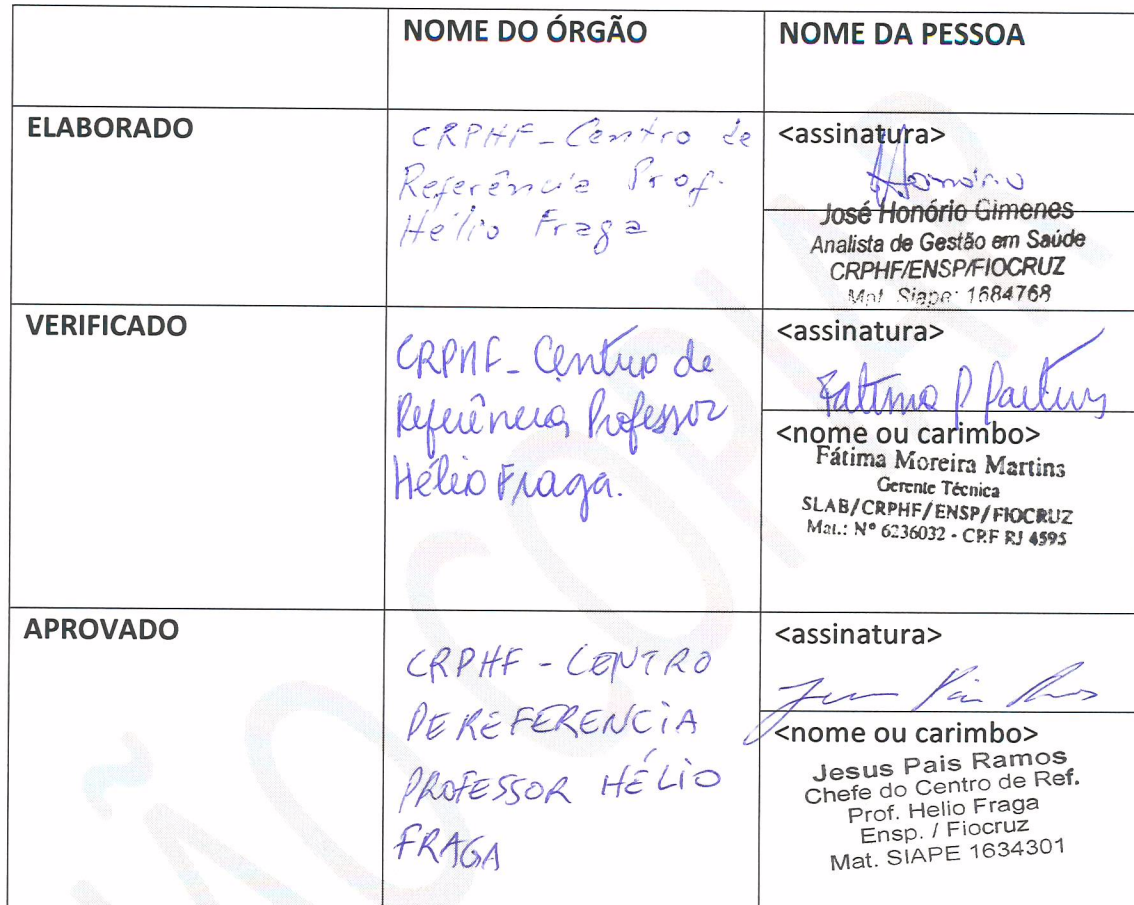 NOME DO ÓRGÃO
NOME DA PESSOA
ELABORADO
CRPHF - Centro de
Referência Prof.
Hélio Fraga
<assinatura>
Honório
José Honório Gimenes
Analista de Gestão em Saúde
CRPHF/ENSP/FIOCRUZ
Mat. Siape: 1684768
VERIFICADO
CRPHF - Centro de
Referência Professor
Hélio Fraga.
<assinatura>
Fatima
<nome ou carimbo>
Fátima Moreira Martins
Gerente Técnica
SLAB/CRPHF/ENSP/FIOCRUZ
Mat.: Nº 6236032 - CRF RJ 4595
APROVADO
CRPHF - CENTRO
DE REFERENCIA
PROFESSOR HÉLIO
FRAGA
<assinatura>
<nome ou carimbo>
Jesus Pais Ramos
Chefe do Centro de Ref.
Prof. Helio Fraga
Ensp. / Fiocruz
Mat. SIAPE 1634301